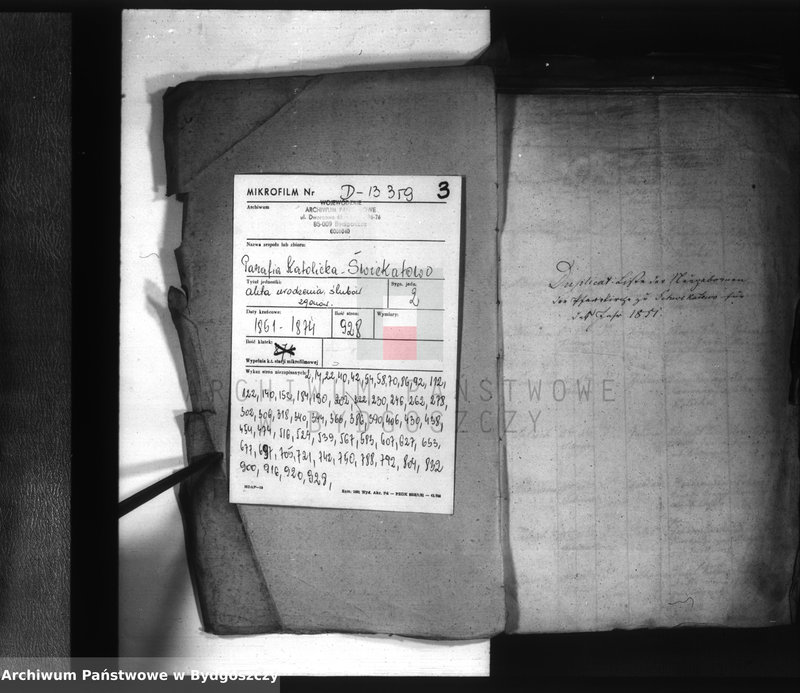 MIKROFILM Nr D-13359 3
Archiwum
WOJEWÓDZKIE
ARCHIWUM PAŃSTWOWE
85-009 Bydgoszcz
Nazwa zespołu lub zbioru:
Parafia Katolicka - Świekatowo
Tytuł jednostki: Sygn. jedn.
akta urodzenia, ślubów 2
zgonów.
Daty krańcowe: Ilość stron: Wymiary:
1861 - 1874 928
Ilość klatek:
Wypełnia k.t. stacji mikrofilmowej
Wykaz stron niezapisanych: 2, 14, 22, 40, 42, 54, 58, 70, 86, 92, 112,
122, 140, 152, 184, 190, 202, 222, 230, 246, 262, 278,
302, 306, 318, 340, 344, 366, 386, 390, 406, 430, 438,
454, 474, 516, 524, 539, 567, 583, 607, 627, 653,
677, 697, 705, 721, 742, 750, 788, 792, 804, 832
900, 916, 920, 928,
Duplicat-Liste der Neugeborenen
der Pfarrkirche zu für
das Jahr 1851
ARCHIWUM PAŃSTWOWE
W BYDGOSZCZY
Archiwum Państwowe w Bydgoszczy